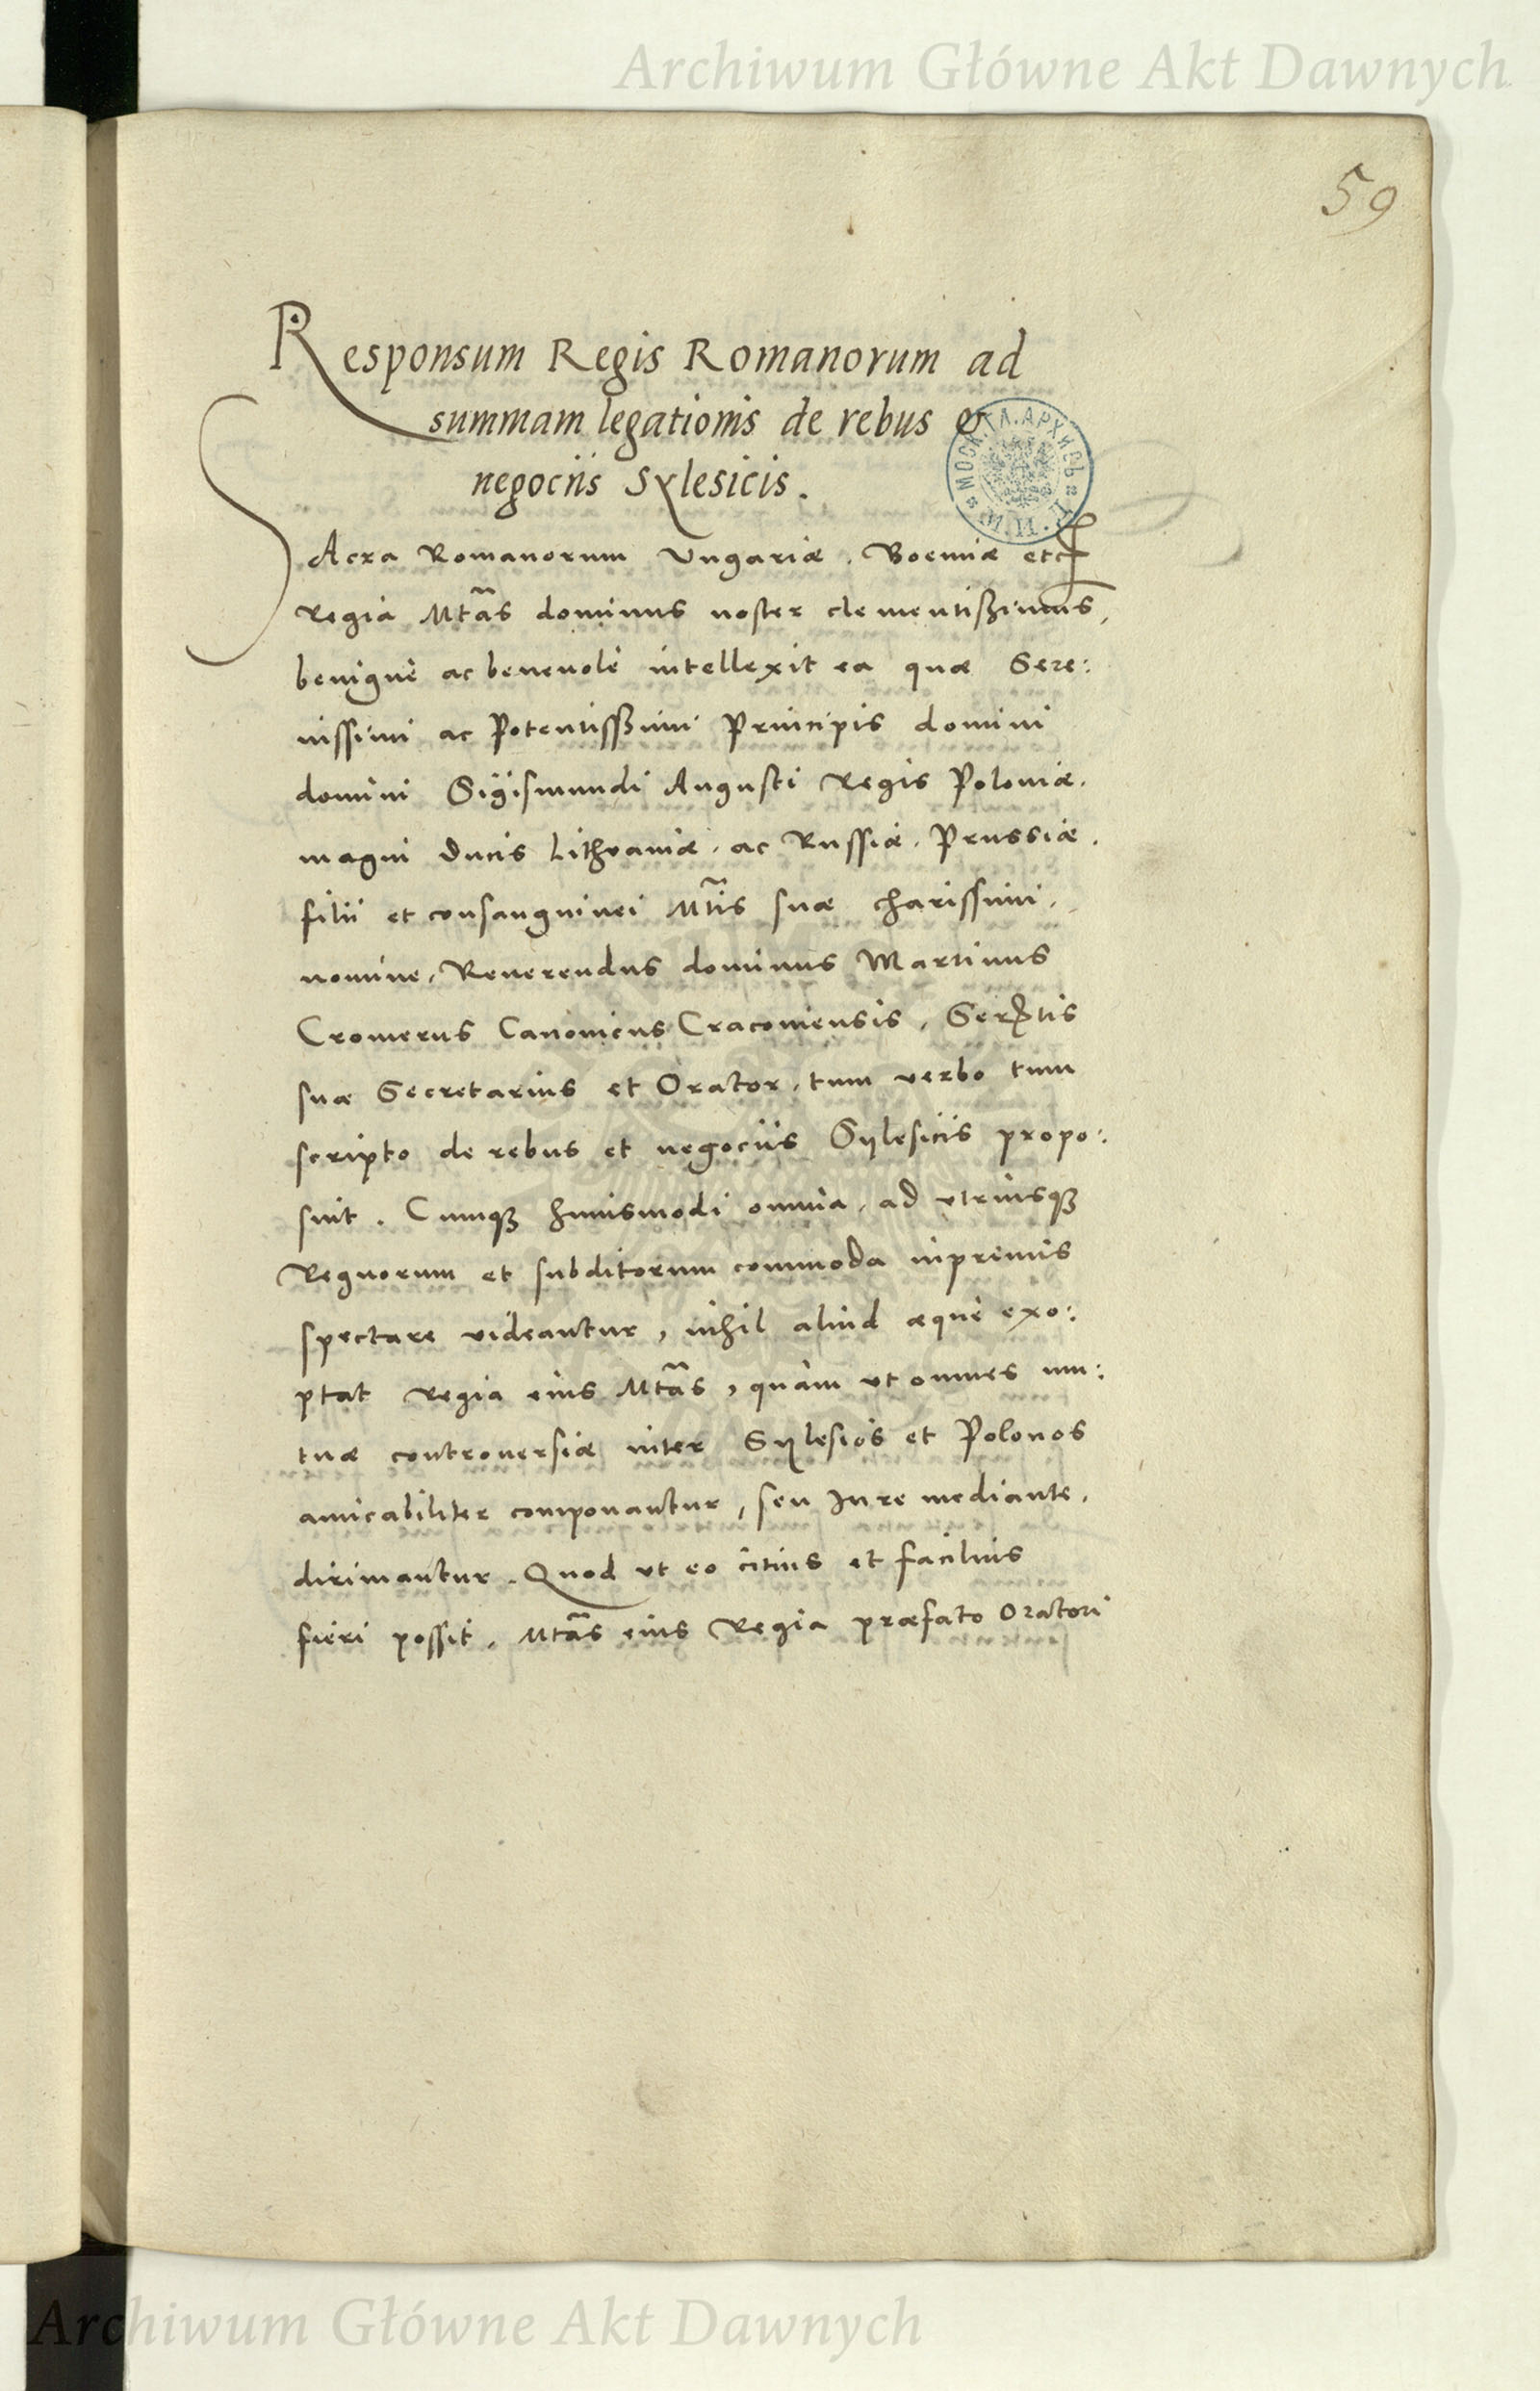 Archiwum Główne Akt Dawnych
59
Responsum Regis Romanorum ad
summam legationis de rebus &
negociis Sylesicis.
SAcra Romanorum Vngariæ, Boemiæ etc
Regia Mtãs dominus noster clementissimus,
benignè ac beneuolè intellexit ea quæ Sere:
nissimi ac Potentissimi Principis domini
domini Sigismundi Augusti Regis Poloniæ,
magni Ducis Lithvaniæ, ac Russiæ, Prussiæ,
filii et consanguinei Mtĩs suæ charissimi,
nomine, Reuerendus dominus Martinus
Cromerus Canonicus Cracouiensis, Sertis
suæ Secretarius et Orator, tum verbo tum
scripto de rebus et negociis Sylesicis propo:
suit. Cumqȝ huiusmodi omnia, ad vtriusqȝ
Regnorum et subditorum commoda inprimis
spectare videantur, nihil aliud æquè exo:
ptat Regia eius Mtãs, quàm vt omnes mu:
tuæ controuersiæ inter Sylesios et Polonos
amicabiliter componantur, seu Iure mediante,
dirimantur. Quod vt eo citius et facilius
fieri possit, Mtãs eius Regia præfato Oratori
Archiwum Główne Akt Dawnych